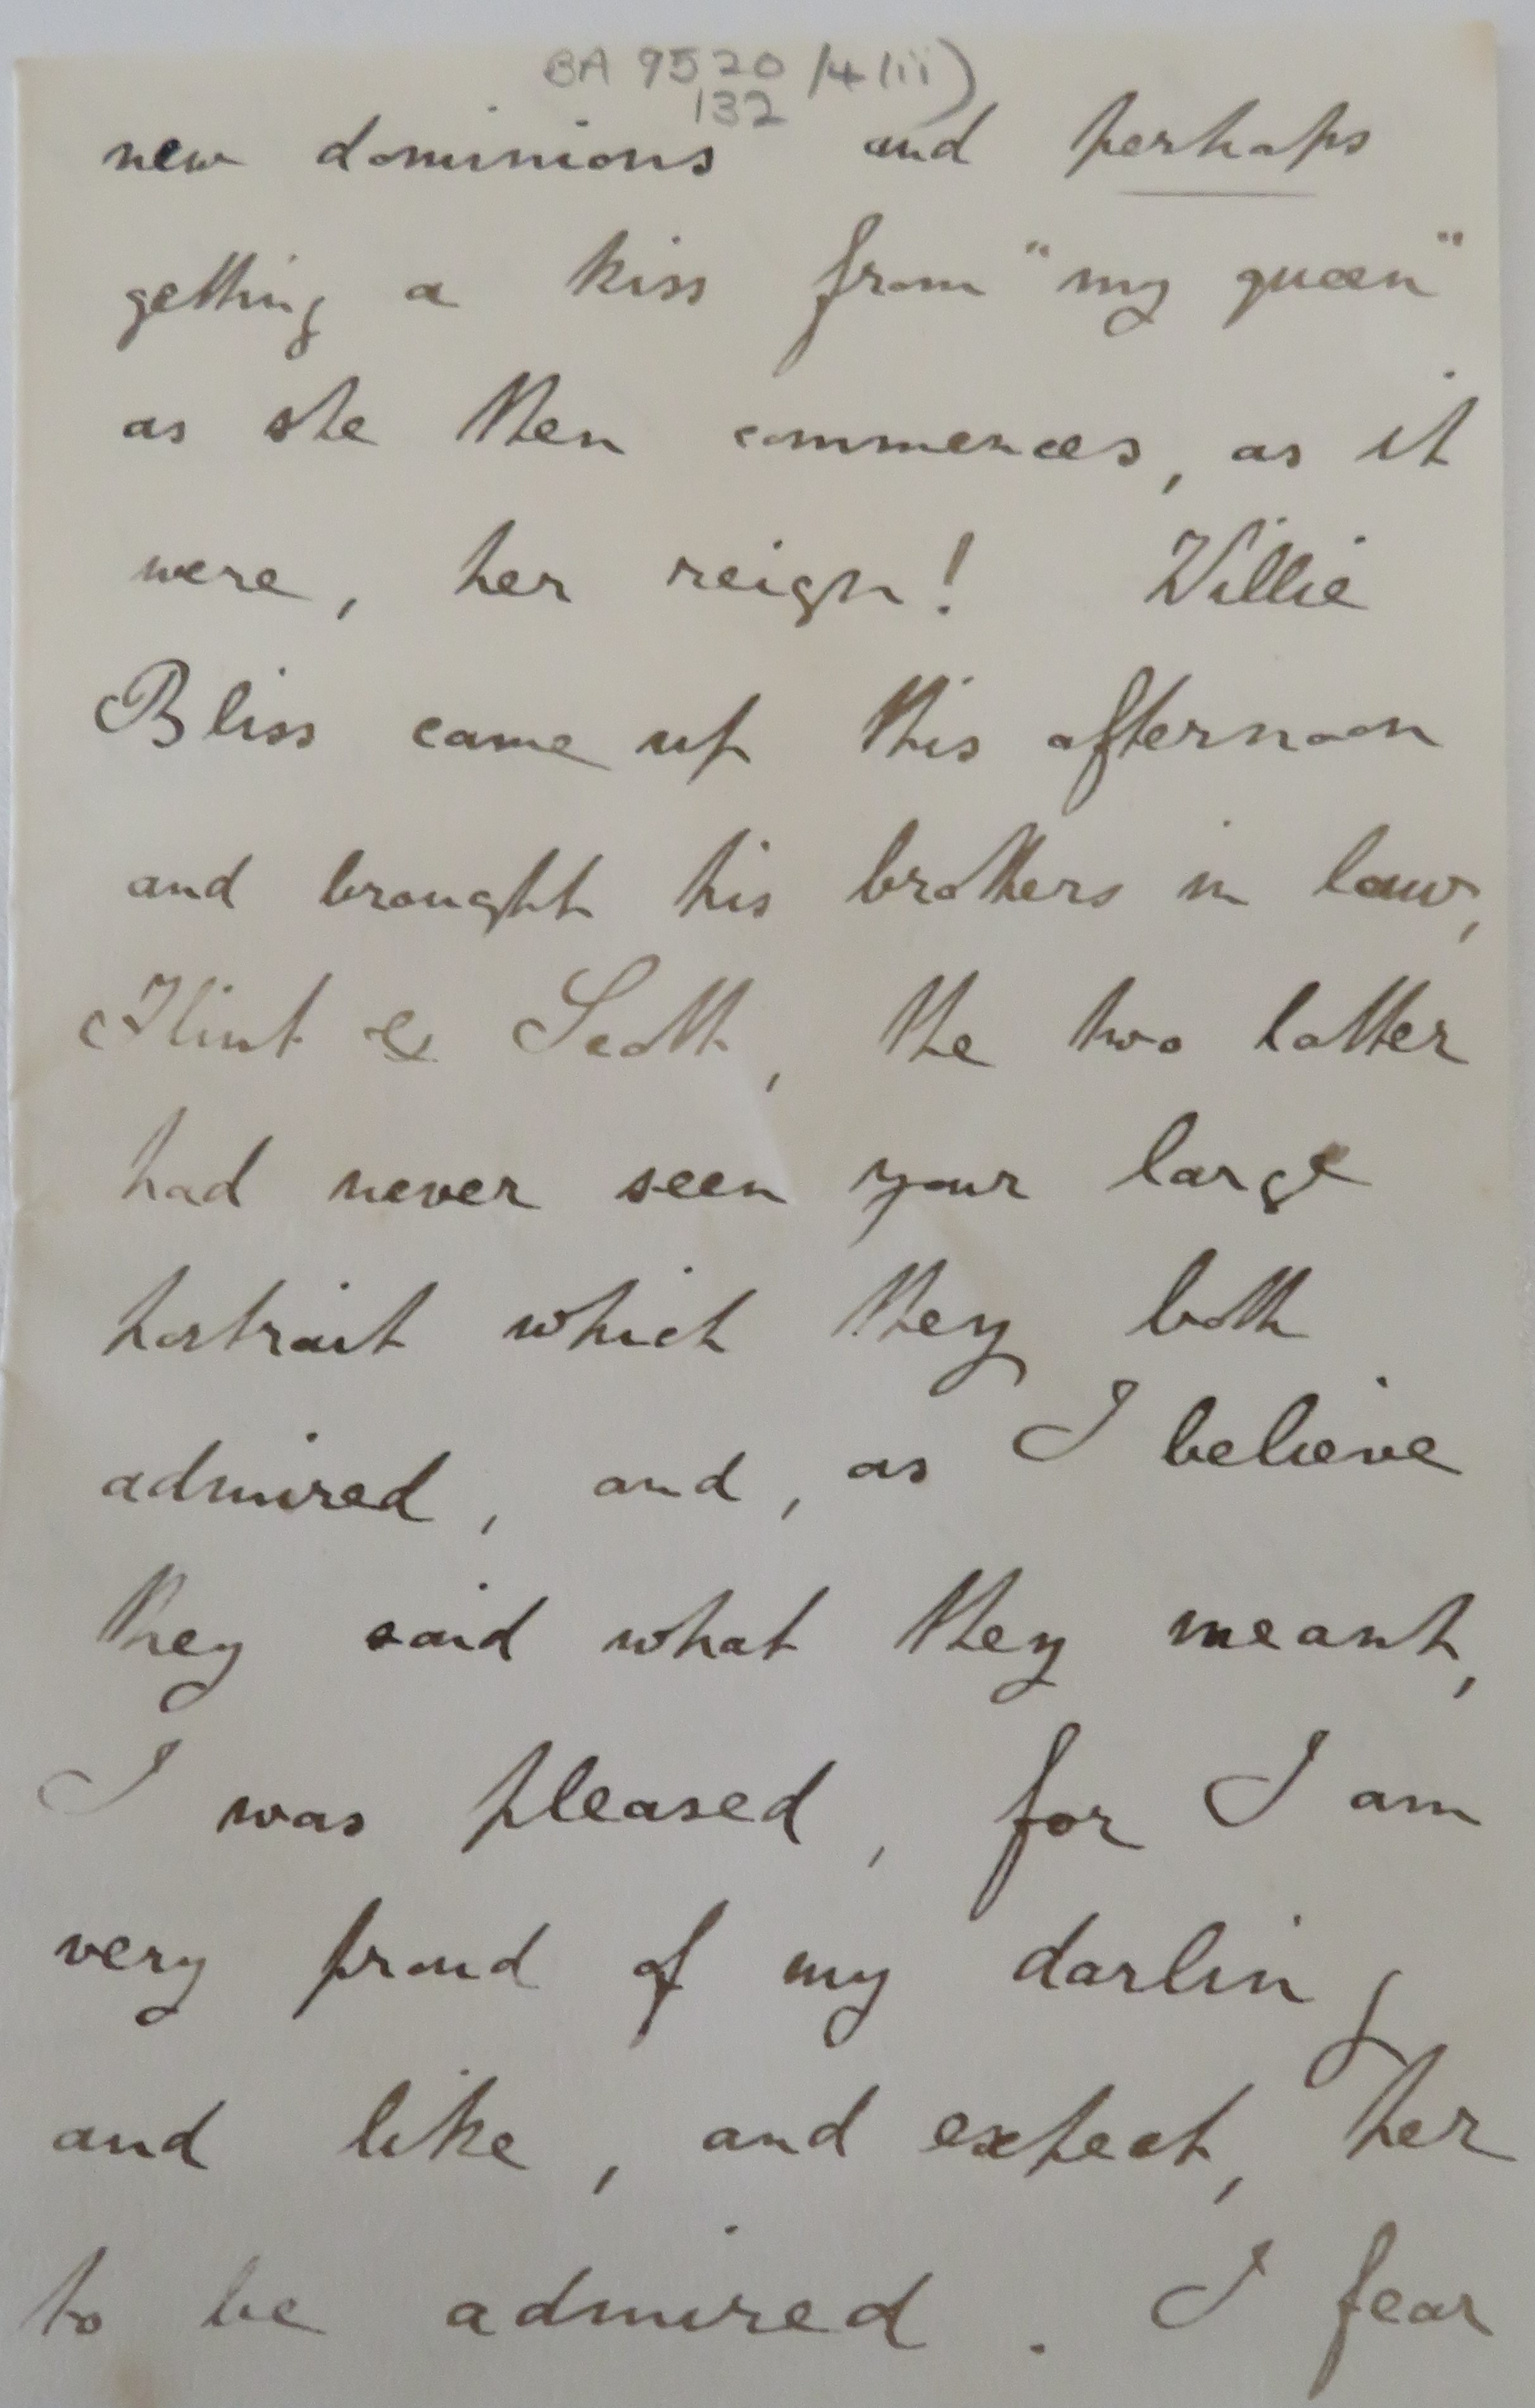 BA 9520/4(ii)
132
new dominions and perhaps
getting a kiss from "my queen"
as she then commences, as it
were, her reign! Willie
Bliss came up this afternoon
and brought his brothers in law,
Flint & Scott, the two latter
had never seen your large
portrait which they both
admired, and, as I believe
they said what they meant,
I was pleased, for I am
very proud of my darling
and like, and expect, her
to be admired. I fear